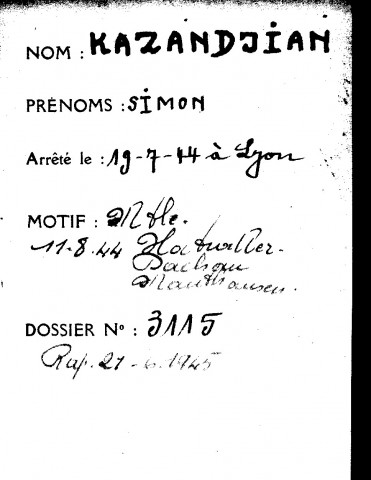 NOM : KAZANDJIAN
PRÉNOMS : SIMON
Arrêté le : 19-7-44 à Lyon
MOTIF : Mtle.
11-8.44 Natzviller.
Dachau
Mauthausen.
DOSSIER N° : 3115
Rap. 21-6.1945